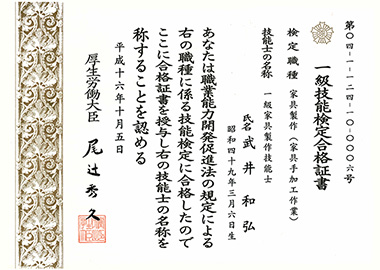 第〇四-一-一二四-一〇-〇〇〇六号
一級技能検定合格証書
検定職種 家具製作(家具手加工作業)
技能士の名称 一級家具製作技能士
氏名 武井和弘
昭和四十九年三月六日生
あなたは職業能力開発促進法の規定による
右の職種に係る技能検定に合格したので
ここに合格証書を授与し右の技能士の名称を
称することを認める
平成十六年十月五日
厚生労働大臣 尾辻秀久